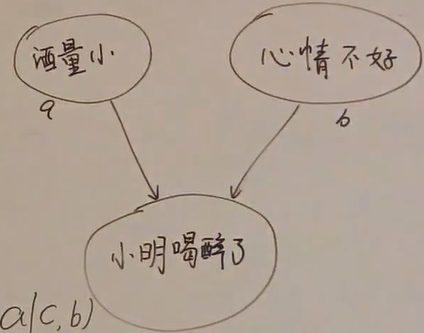 酒量小
心情不好
a
b
小明喝醉了
a|c,b)